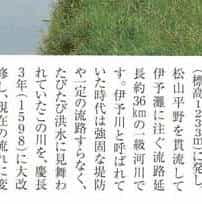 (標高1233m)に発し、
松山平野を貫流して
伊予灘に注ぐ流路延
長約36kmの一級河川で
す。伊予川と呼ばれて
いた時代は強固な堤防
や一定の流路すらなく、
たびたび洪水に見舞わ
れていたこの川を、慶長
3年(1598)に大改
修し、現在の流れに変